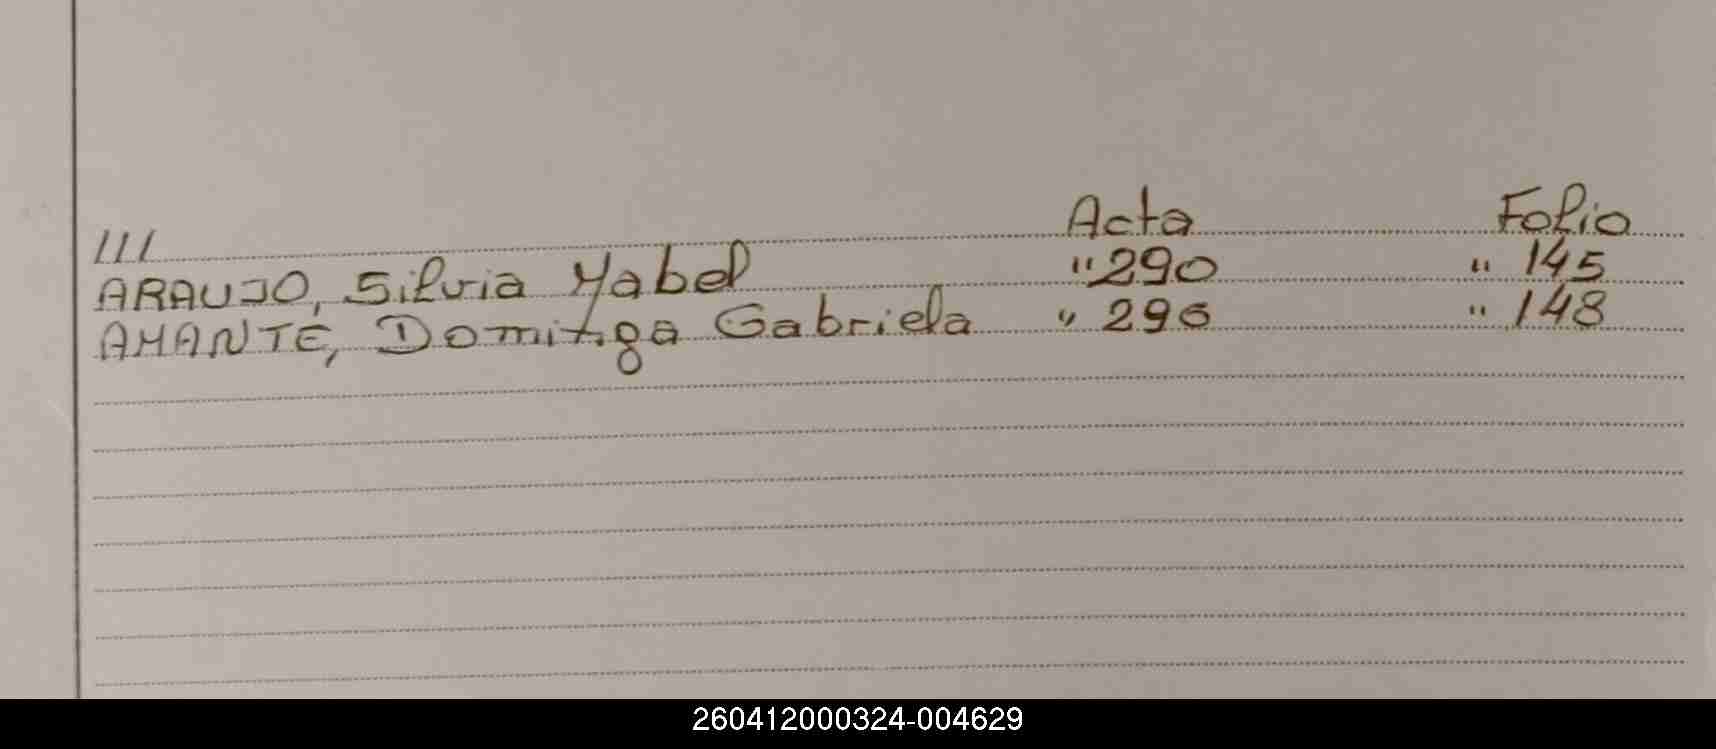 /// Acta Folio
ARAUJO, Silvia Mabel " 290 " 145
AMANTE, Dominga Gabriela " 296 " 148
260412000324-004629